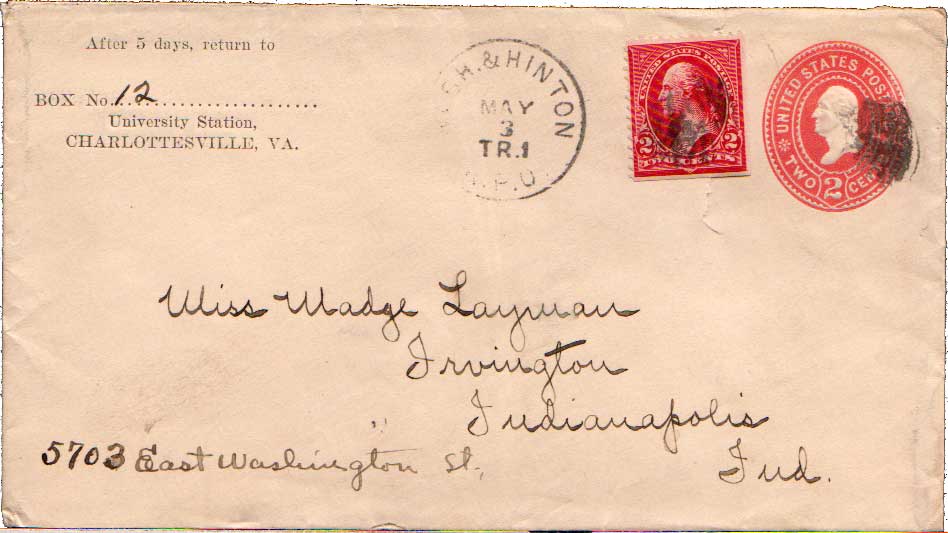 After 5 days, return to
BOX No. 12
University Station,
CHARLOTTESVILLE, VA.
& HINTON
MAY
3
TR.1
R.P.O.
UNITED STATES POSTAGE
2 2
TWO CENTS
UNITED STATES POST
TWO 2 CEN
Miss Madge Layman
Irvington
Indianapolis
Ind.
5703 East Washington St.